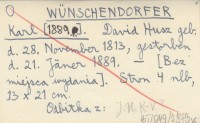 WÜNSCHENDORFER
Karl [1889]. David Husz geb.
d. 28. November 1813, gestorben
d. 21. Jäner 1889. — [Bez
miejsca wydania]. Stron 4 nlb,
13 x 21 cm.
Odbitka z: